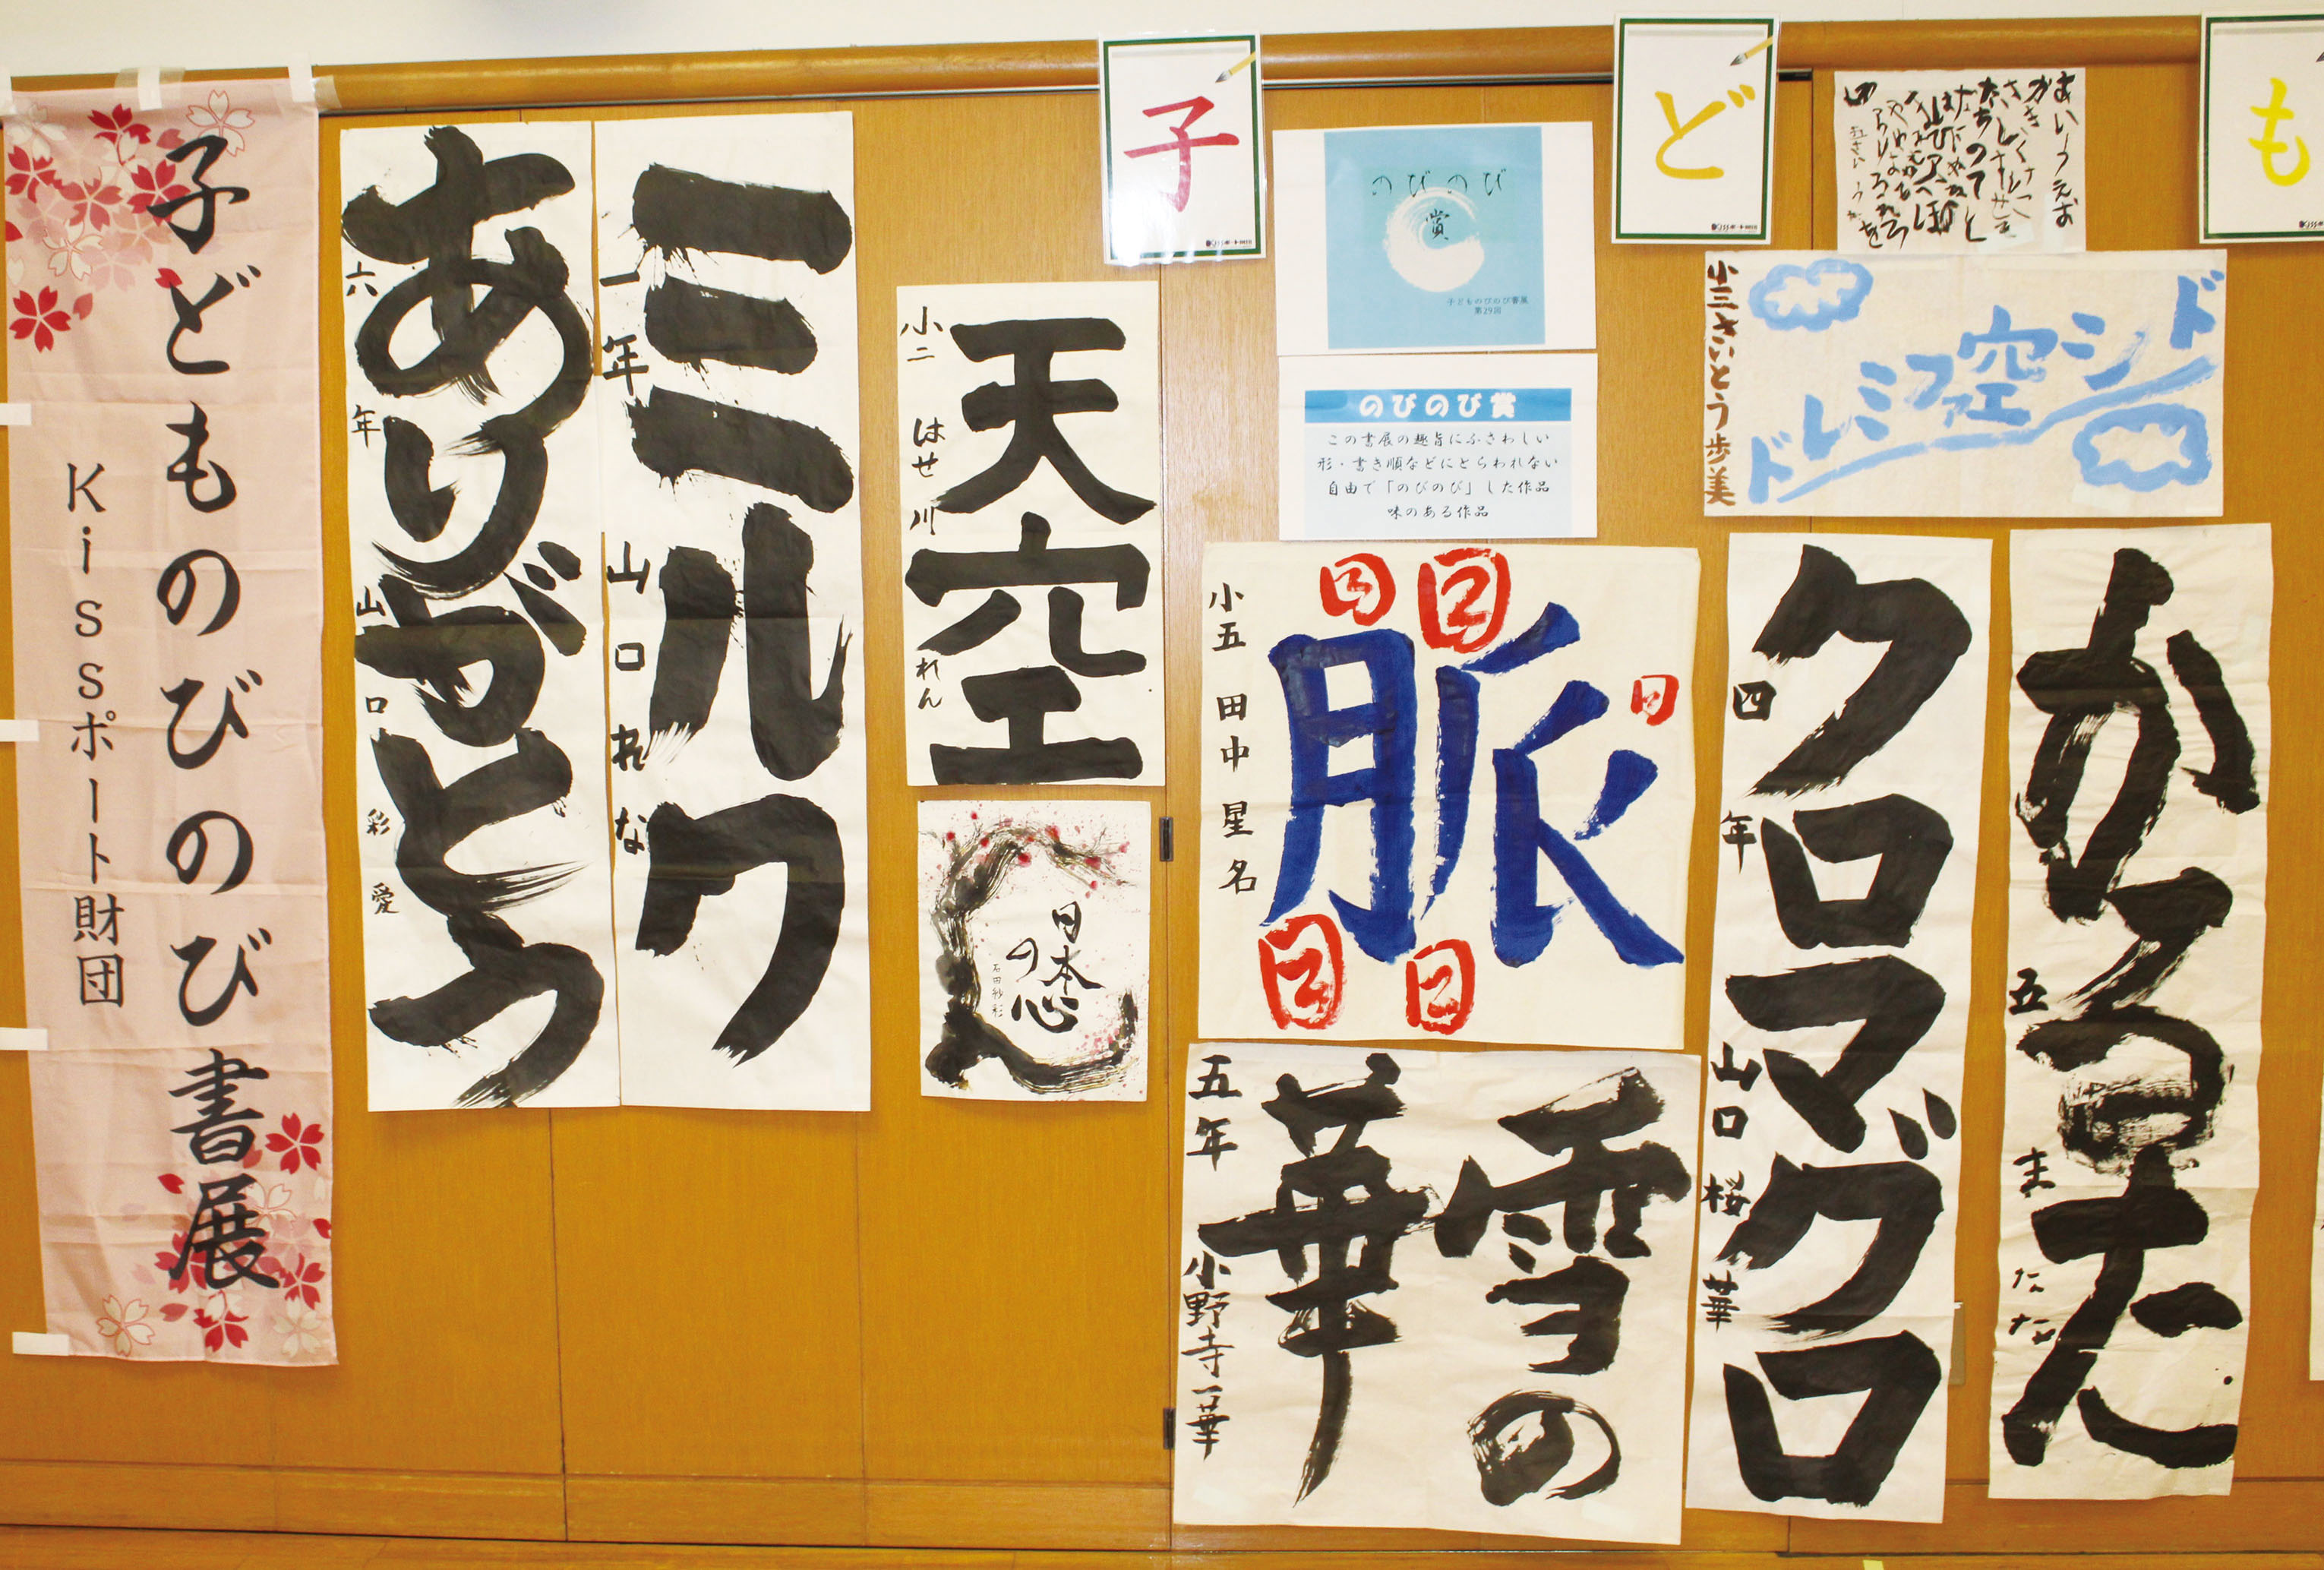 子どものびのび書展
Kissポート財団
ありがとう
六年 山口彩愛
ミルク
一年 山口れな
天空
小二 はせ川れん
日本
の心
子
のびのび
賞
子どものびのび書展
第29回
のびのび賞
この書展の趣旨にふさわしい
形・書き順などにとらわれない
自由で「のびのび」した作品
味のある作品
脈
小五 田中星名
雪の
華
五年 小野寺一華
ど
あいうえお
かきくけこ
ドレミファ空シド
小三 さいとう歩美
クロマグロ
四年 山口桜華
かるた
も